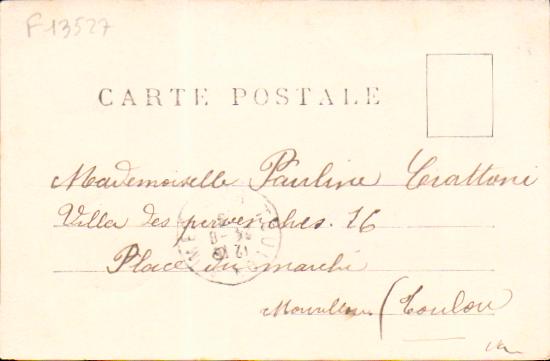 F 13527
CARTE POSTALE
Mademoiselle Pauline Crattoni
Villa des pervenches. 16
Place du marché
Mourillon (Toulon